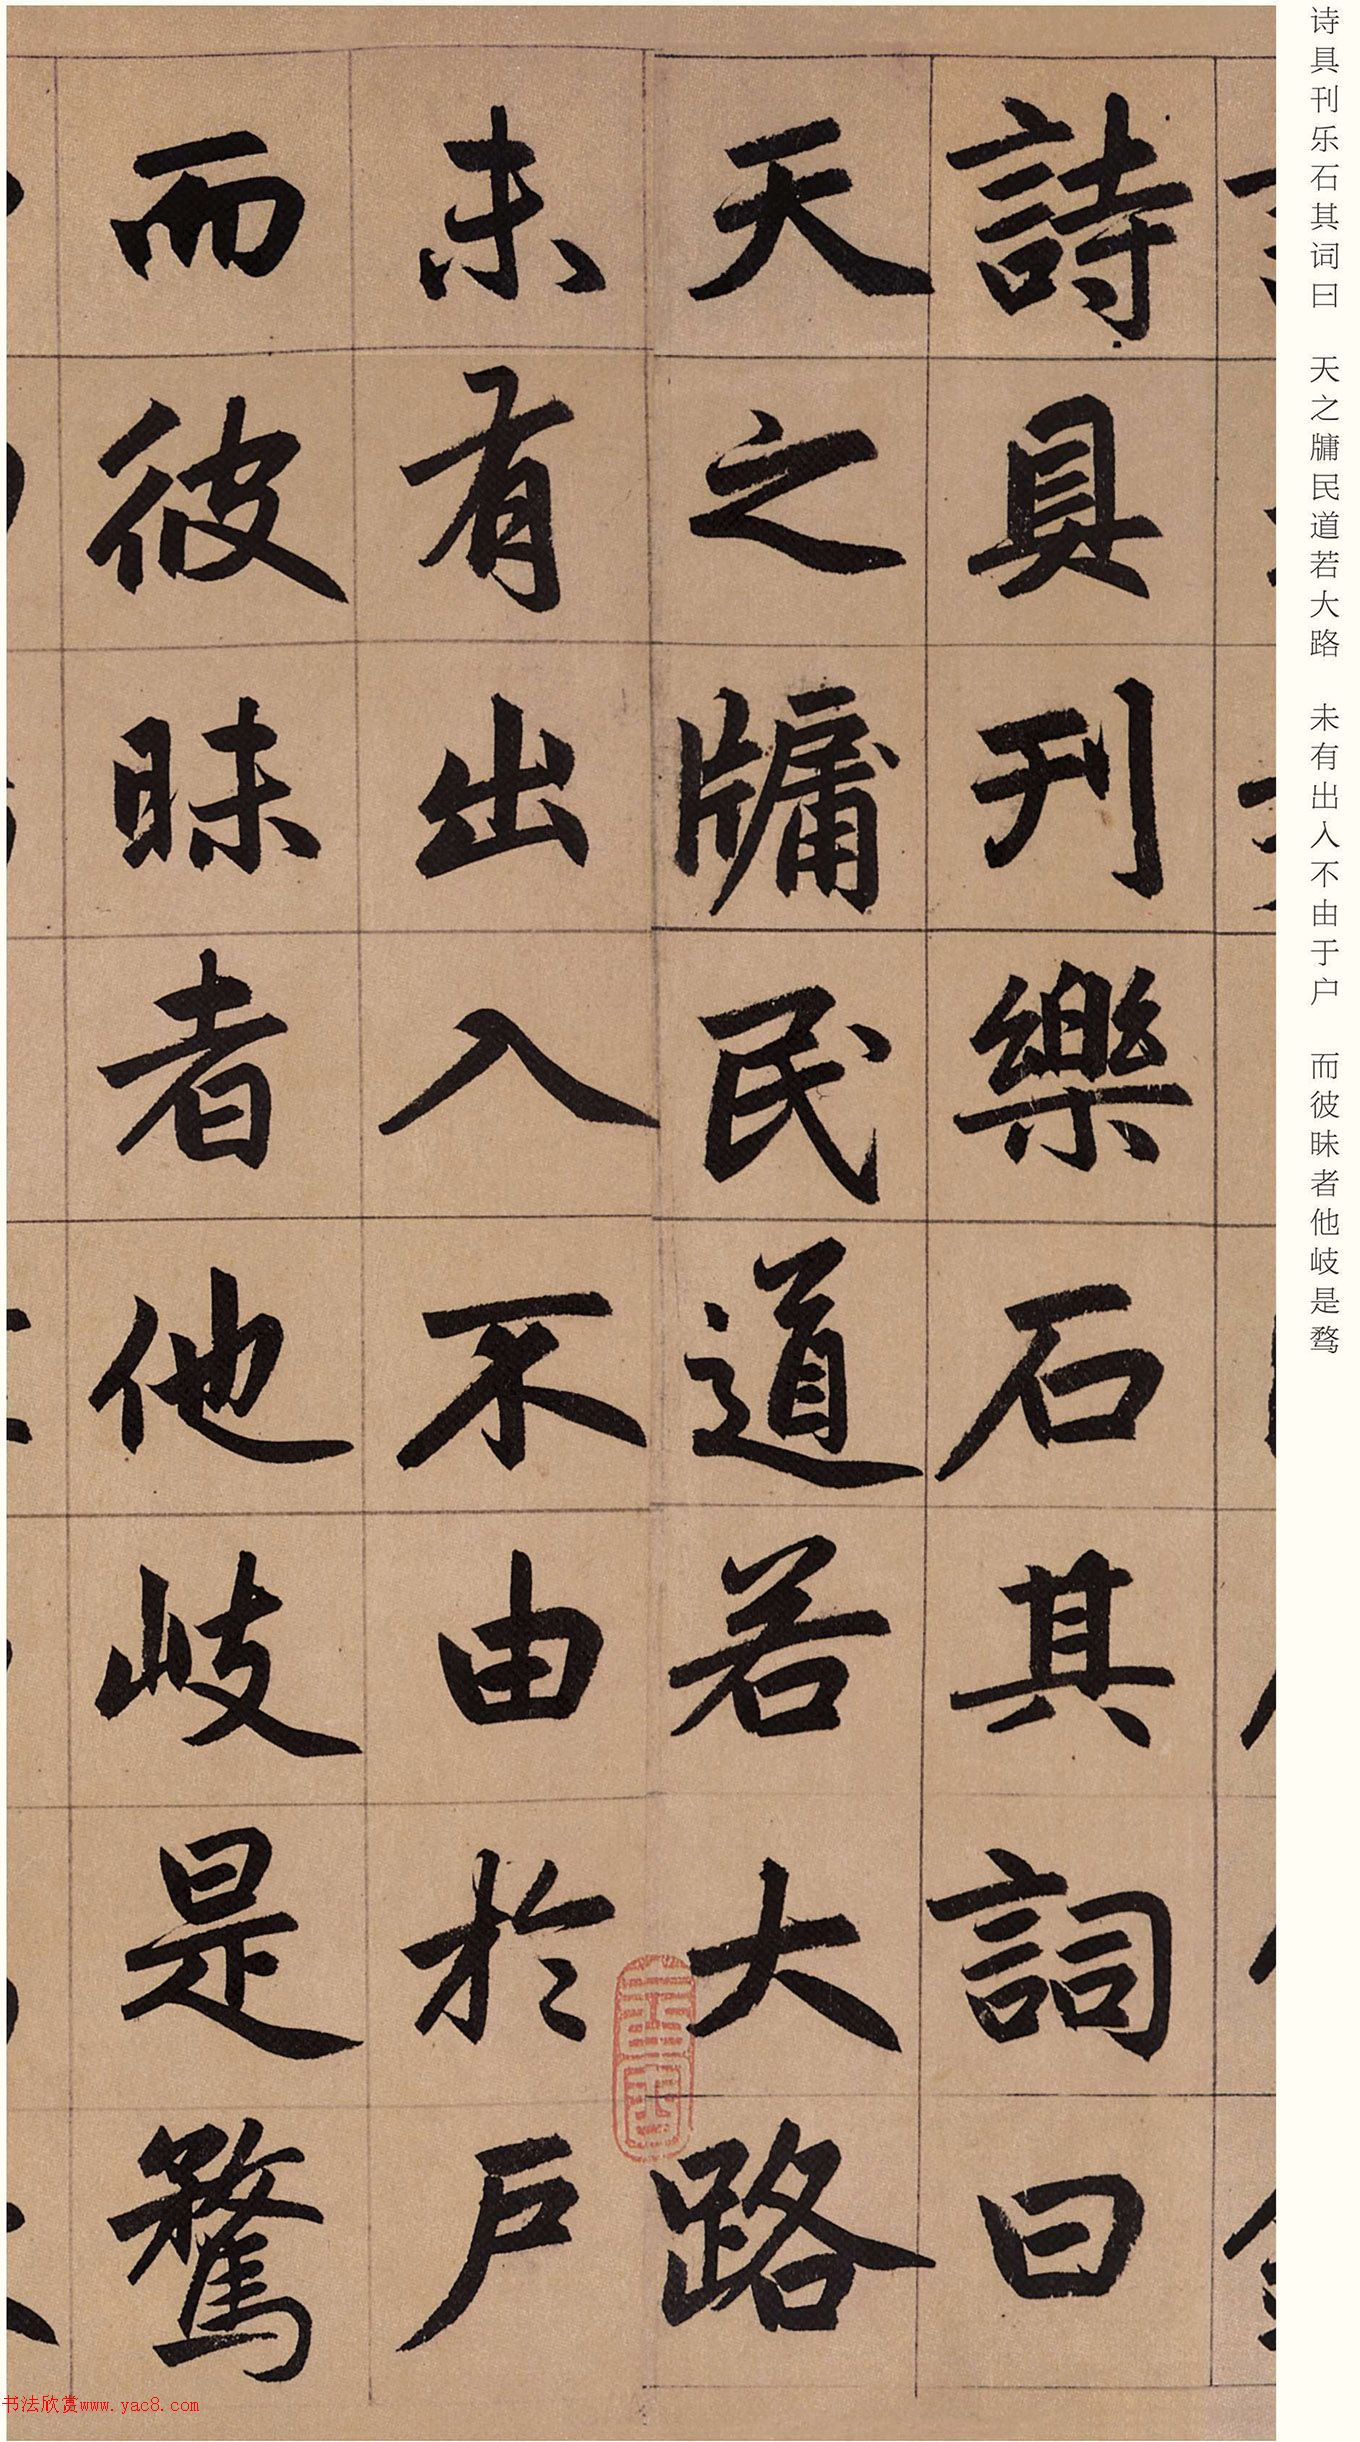 诗具刊乐石其词曰 天之牗民道若大路 未有出入不由于户 而彼昧者他岐是骛
詩具刊樂石其詞曰
天之牗民道若大路
未有出入不由於戶
而彼昧者他岐是騖
书法欣赏www.yac8.com